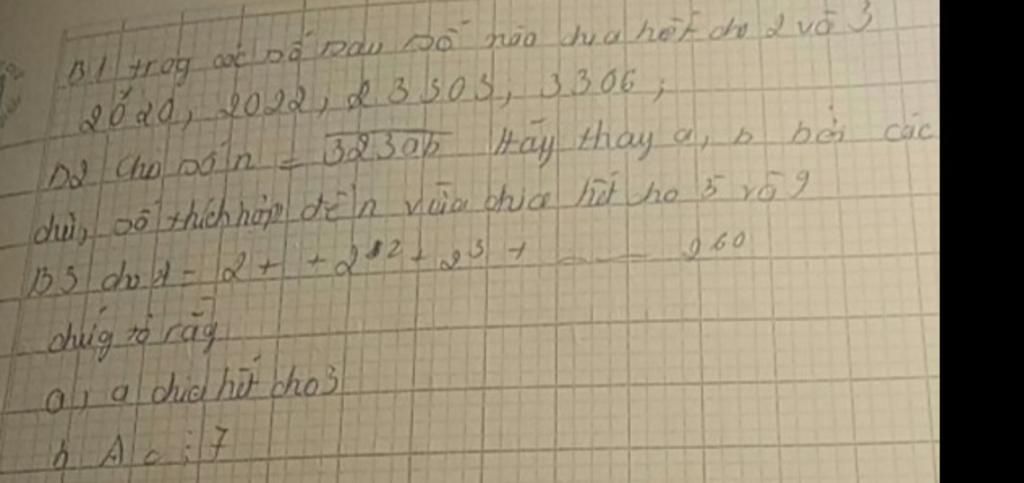 B1 trog các số sau số nào chia hết cho 2 và 3
2020, 2022, 23303, 3306;
B2 Cho số n = 323ab Hãy thay a, b bởi các
chữ, số thích hợp để n vừa chia hết cho 5 và 9
B3 cho A = 2 + + 2² + 2³ + ...... 2⁶⁰
chứg tỏ rằg
a, a chia hết cho 3
b A ⋮ 7